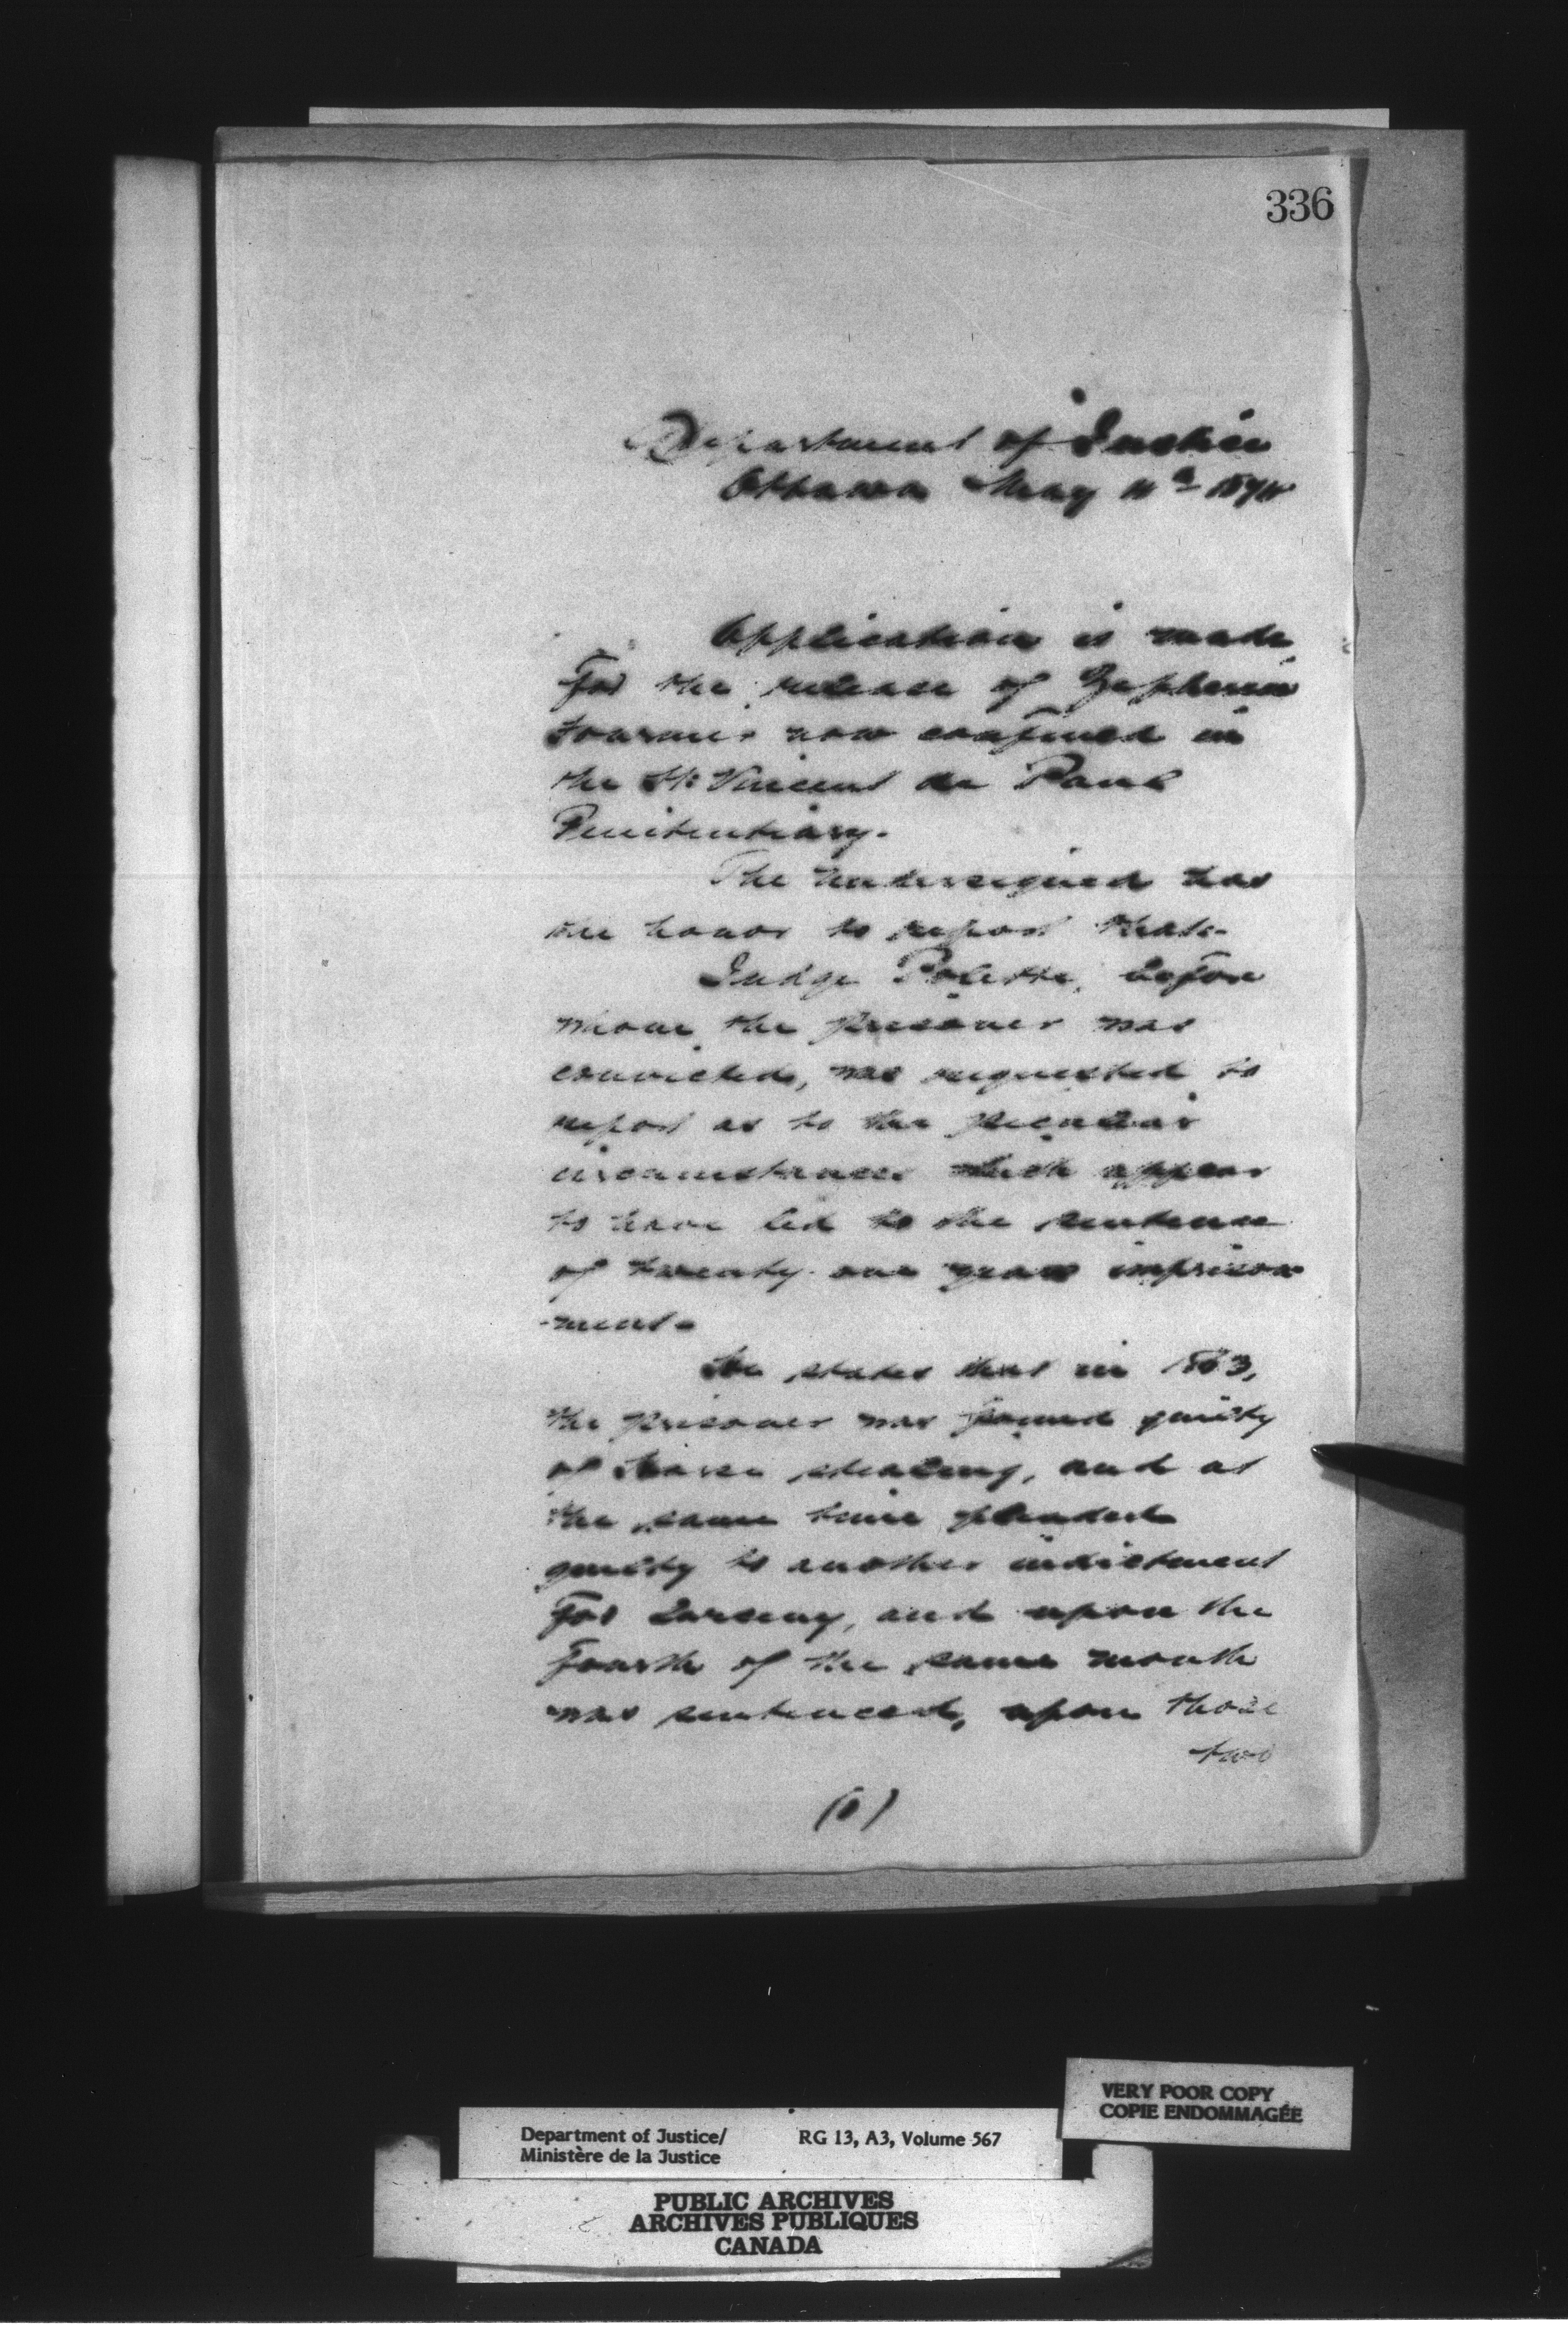 336
Department of Justice
Ottawa May 11th
Application is made
for the release of Zepherin
now confined in
the St. Vincent de Paul
Penitentiary.
The undersigned has
the honor to report that-
Judge Polette, before
whom the prisoner was
convicted, was requested to
report as to the peculiar
circumstances which appear
to have led to the sentence
of twenty one years imprison
-ment-
He states that in 1863,
the prisoner was found guilty
of horse stealing, and at
the same time pleaded
guilty to another indictment
for Larceny, and upon the
fourth of the same month
was sentenced, upon those
two
(1)
VERY POOR COPY
COPIE ENDOMMAGÉE
Department of Justice/ RG 13, A3, Volume 567
Ministère de la Justice
PUBLIC ARCHIVES
ARCHIVES PUBLIQUES
CANADA